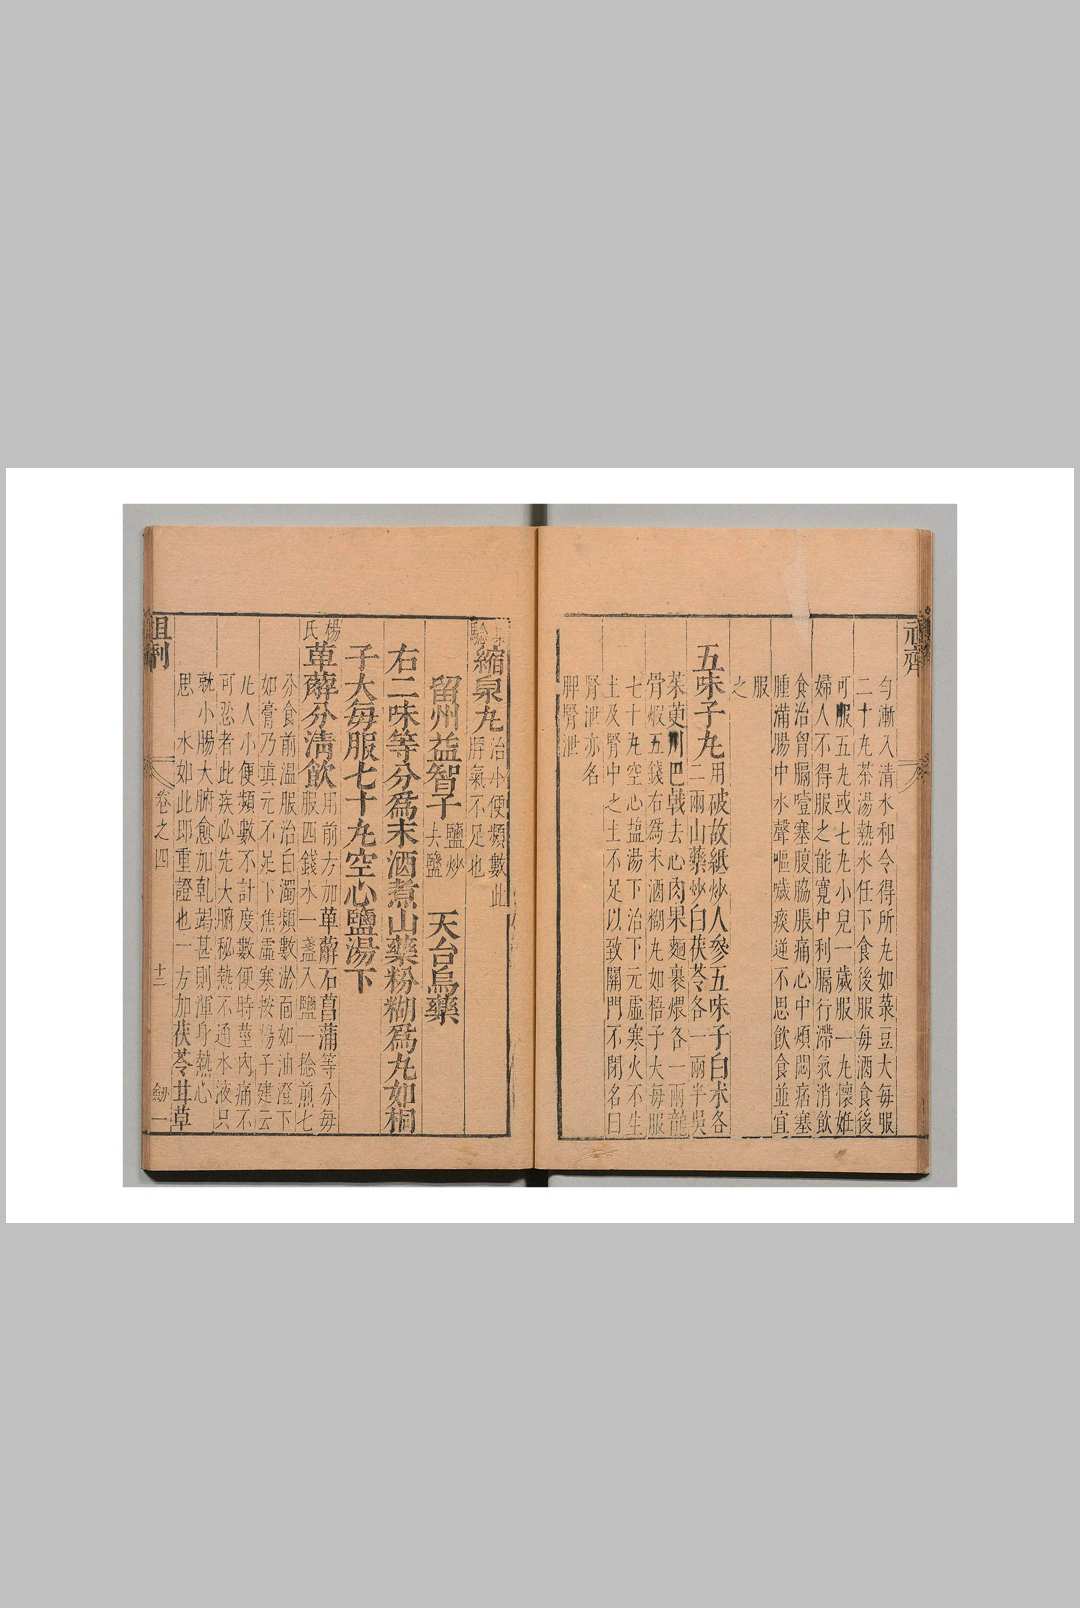 祖劑
勻漸入清水和令得所丸如菉豆大每服
二十丸茶湯熱水任下食後服每酒食後
可服五丸或七丸小兒一歲服一丸懷姙
婦人不得服之能寬中利膈行滯氣消飲
食治胷膈噎塞腹脇脹痛心中煩悶痞塞
腫滿腸中水聲嘔噦痰逆不思飲食並宜
服
之
五味子丸用破故紙炒人參五味子白朮各
二兩山藥炒白茯苓各一兩半吳
茱萸川巴戟去心肉果麵裹煨各一兩龍
骨煆五錢右爲末酒糊丸如梧子大每服
七十丸空心鹽湯下治下元虛寒火不生
土及腎中之主不足以致關門不閉名曰
腎泄亦名
脾腎泄
驗縮泉丸治小便頻數此
脬氣不足也
留州益智子鹽炒去鹽 天台烏藥
右二味等分爲末酒煮山藥粉糊爲丸如桐
子大每服七十丸空心鹽湯下
楊氏萆薢分清飲用前方加萆薢石菖蒲等分每
服四錢水一盞入鹽一捻煎七
分食前溫服治白濁頻數淤面如油澄下
如膏乃眞元不足下焦虛寒按楊子建云
凡人小便頻數不計度數便時莖內痛不
可忍者此疾必先大腑秘熱不通水液只
就小腸大腑愈加乾竭甚則渾身熱心
思 水如此即重證也一方加茯苓甘草
祖劑 卷之四 十三